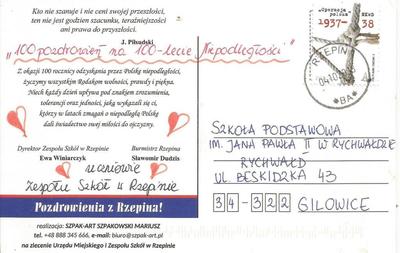 Kto nie szanuje i nie ceni swojej przeszłości,
ten nie jest godzien szacunku, teraźniejszości
ani prawa do przyszłości.
J. Piłsudski
"100 pozdrowień na 100-lecie Niepodległości"
Z okazji 100 rocznicy odzyskania przez Polskę niepodległości,
życzymy wszystkim Rodakom wolności, prawdy i piękna.
Niech każdy dzień upływa pod znakiem zrozumienia,
tolerancji oraz jedności, jaką wykazali się ci,
którzy w latach zmagań o niepodległą Polskę
dali świadectwo swej miłości do ojczyzny.
Dyrektor Zespołu Szkół w Rzepinie
Ewa Winiarczyk
Burmistrz Rzepina
Sławomir Dudzis
uczniowie
Zespołu Szkół w Rzepinie
Pozdrowienia z Rzepina!
realizacja: SZPAK-ART SZPAKOWSKI MARIUSZ
tel. +48 888 345 666, e-mail: biuro@szpak-art.pl
na zlecenie Urzędu Miejskiego i Zespołu Szkół w Rzepinie
"Operacja
polska" NKWD
1937-38
RZEPIN
04.10
BA
SZKOŁA PODSTAWOWA
IM. JANA PAWŁA II W RYCHWAŁDZIE
RYCHWAŁD
UL. BESKIDZKA 43
34-322 GILOWICE